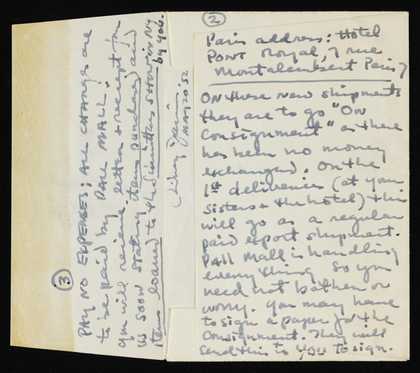 ②
Paris address: Hotel
PONT Royal, 7 rue
Montalembert Paris 7
ON these new shipments
they are to go "ON
Consignment" as there
has been no money
exchanged. On the
1st deliveries (at your
Sisters & the hotel) this
will go as a regular
paid export shipment.
Pall Mall is handling
everything so you
need not bother or
worry. You may have
to sign a paper for the
Consignment. They will
send this to YOU to sign.
③
PAY NO EXPENSES; ALL CHARGES are
to be paid by PALL MALL!
you will receive letter & receipt from
us soon stating items purchased and
items loaned to the show in NY
by you.